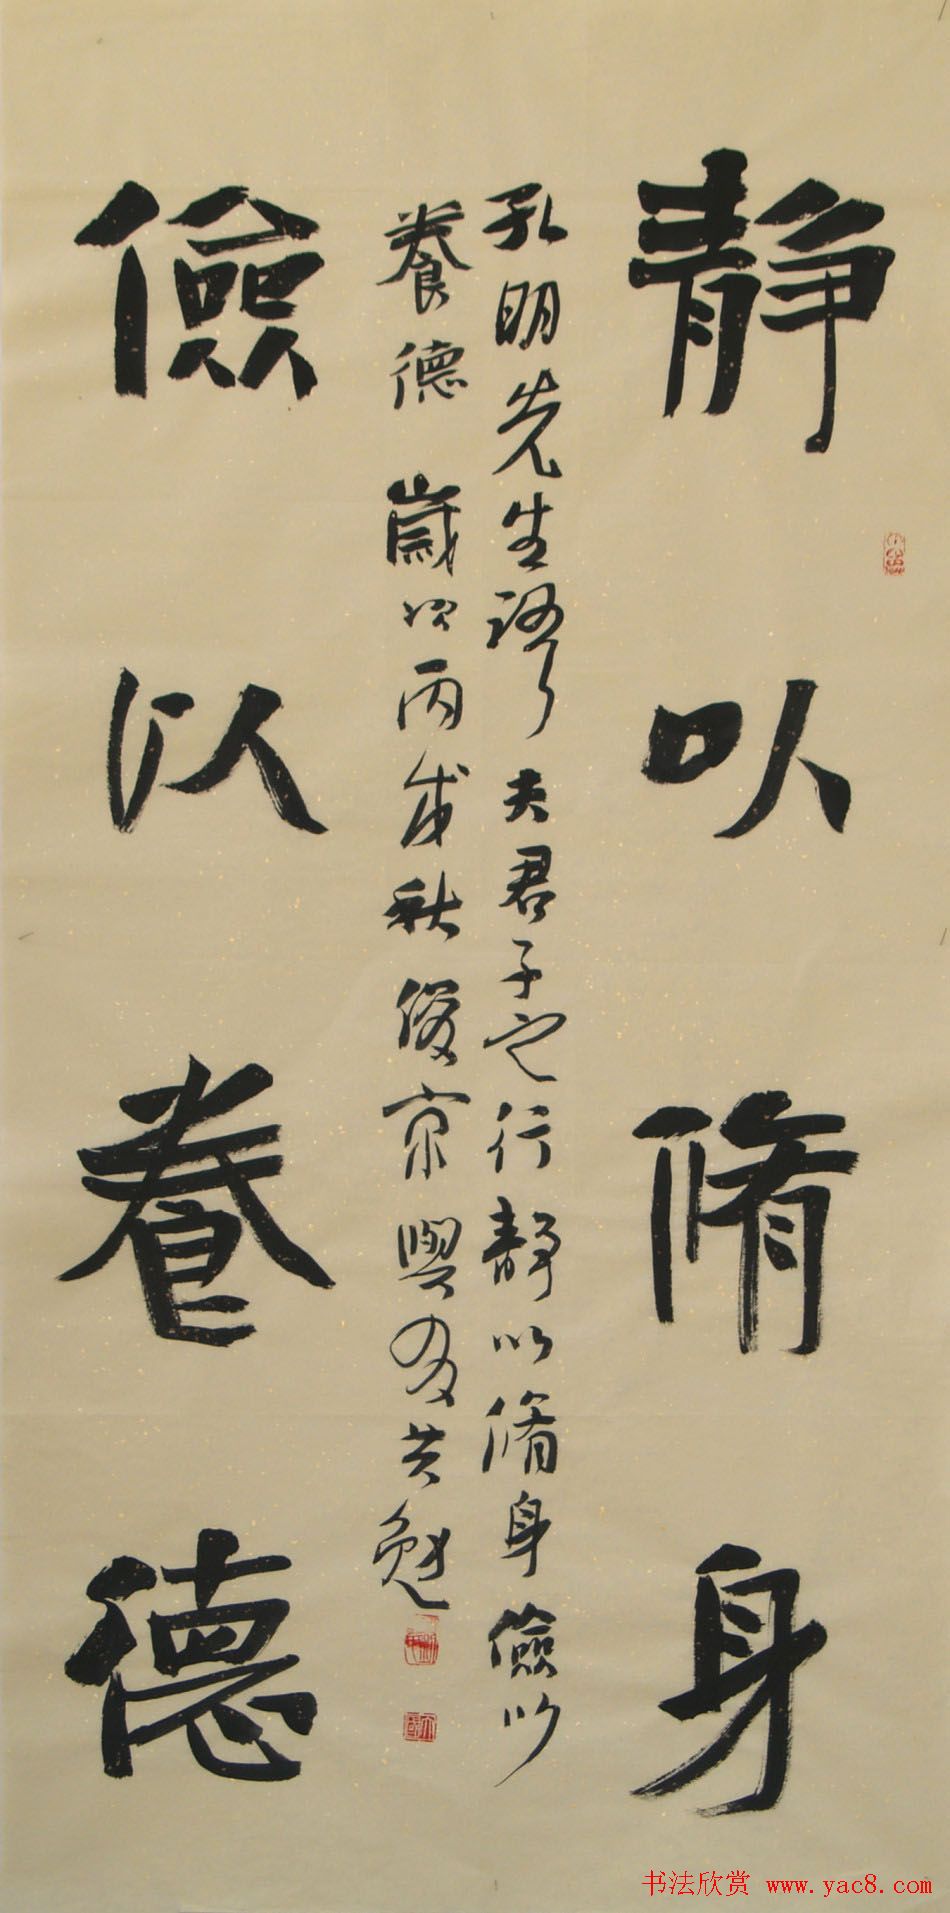 靜以脩身
孔明先生夫君子之行靜以脩身儉以
養德歲次丙戌秋俊京與友共勉
儉以養德
书法欣赏 www.yac8.com